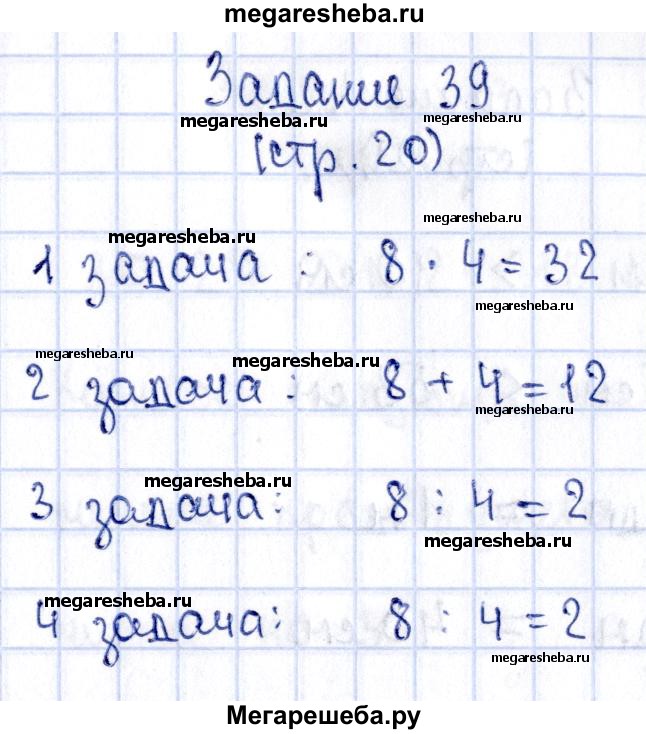 megaresheba.ru
Задание 39
megaresheba.ru megaresheba.ru
(стр. 20)
megaresheba.ru
megaresheba.ru
1 задача : 8 · 4 = 32
megaresheba.ru
megaresheba.ru megaresheba.ru
2 задача : 8 + 4 = 12
megaresheba.ru
megaresheba.ru
3 задача : 8 : 4 = 2
megaresheba.ru
megaresheba.ru
4 задача : 8 : 4 = 2
megaresheba.ru
Мегарешеба.ру